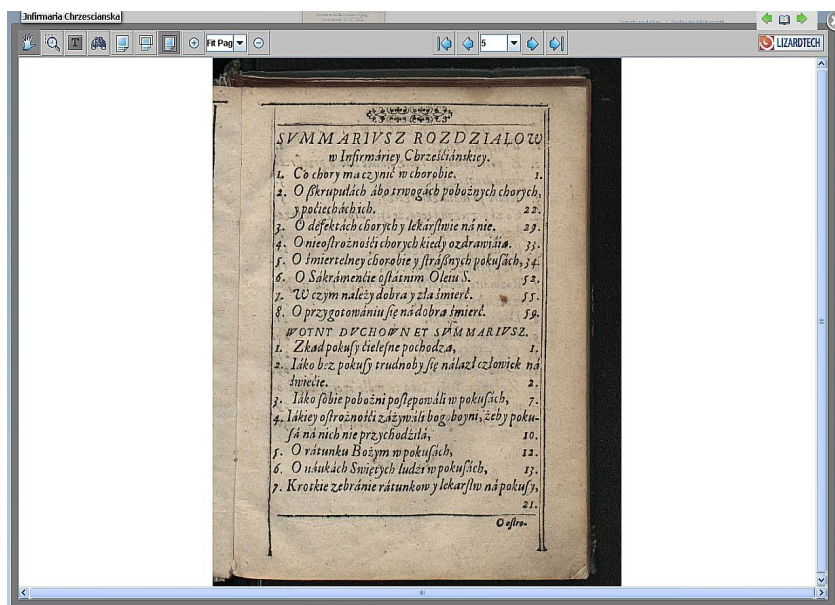 Jnfirmaria Chrzescianska
Fit Pag
5
LIZARDTECH
SVMMARIVSZ ROZDZIALOW
w Infirmáriey Chrześćiánskiey.
1. Co chory ma czynić w chorobie. 1.
2. O ſkrupułách ábo trwogách pobożnych chorych,
y poćiechách ich. 22.
3. O defektách chorych y lekárſtwie ná nie. 29.
4. O nieoſtrożnośći chorych kiedy ozdrawiáią. 33.
5. O śmiertelney chorobie y ſtráßnych pokuſách, 34.
6. O Sákrámenćie oſtátnim Oleiu S. 52.
7. W czym należy dobra y zła śmierć. 55.
8. O przygotowániu ſię ná dobra śmierć. 59.
WOYNY DVCHOWNEY SVMMARIVSZ.
1. Zkad pokuſy ćieleſne pochodza, 1.
2. Iáko bez pokuſy trudnoby ſię nálazł człowiek ná
świećie. 2.
3. Iáko ſobie pobożni poſtępowáli w pokuſách, 7.
4. Iákiey oſtrożnośći záżywáli bogoboyni, żeby poku-
ſá ná nich nie przychodźiłá, 10.
5. O rátunku Bożym w pokuſách, 12.
6. O náukách Swiętych ludźi w pokuſách, 13.
7. Krotkie zebránie rátunkow y lekarſtw ná pokuſy,
21.
O oſtro-